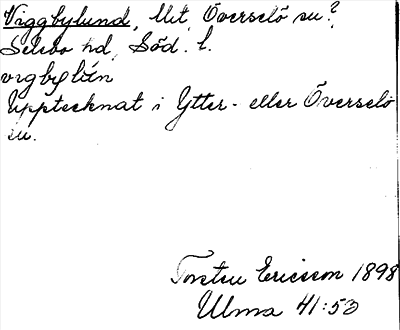 Viggbylund, llt, Överselö sn?
Selebo hd, Söd. l.
vigbylön
Upptecknat i Ytter- eller Överselö
sn.
Torsten Ericsson 1898
Ulma 41:53